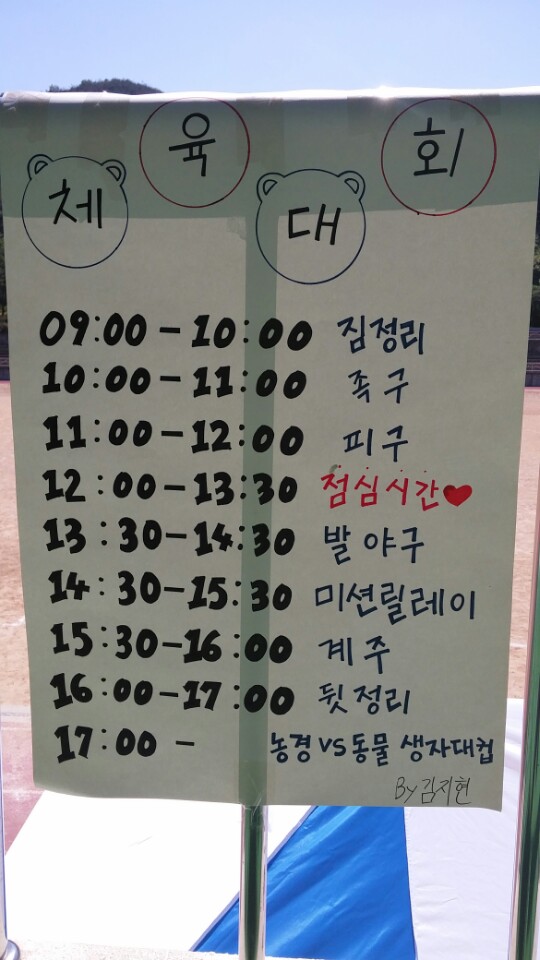 체육대회
09:00 - 10:00 짐정리
10:00 - 11:00 족구
11:00 - 12:00 피구
12:00 - 13:30 점심시간♥
13:30 - 14:30 발야구
14:30 - 15:30 미션릴레이
15:30 - 16:00 계주
16:00 - 17:00 뒷정리
17:00 - 농경 vs 동물 생자대컵
By 김지현